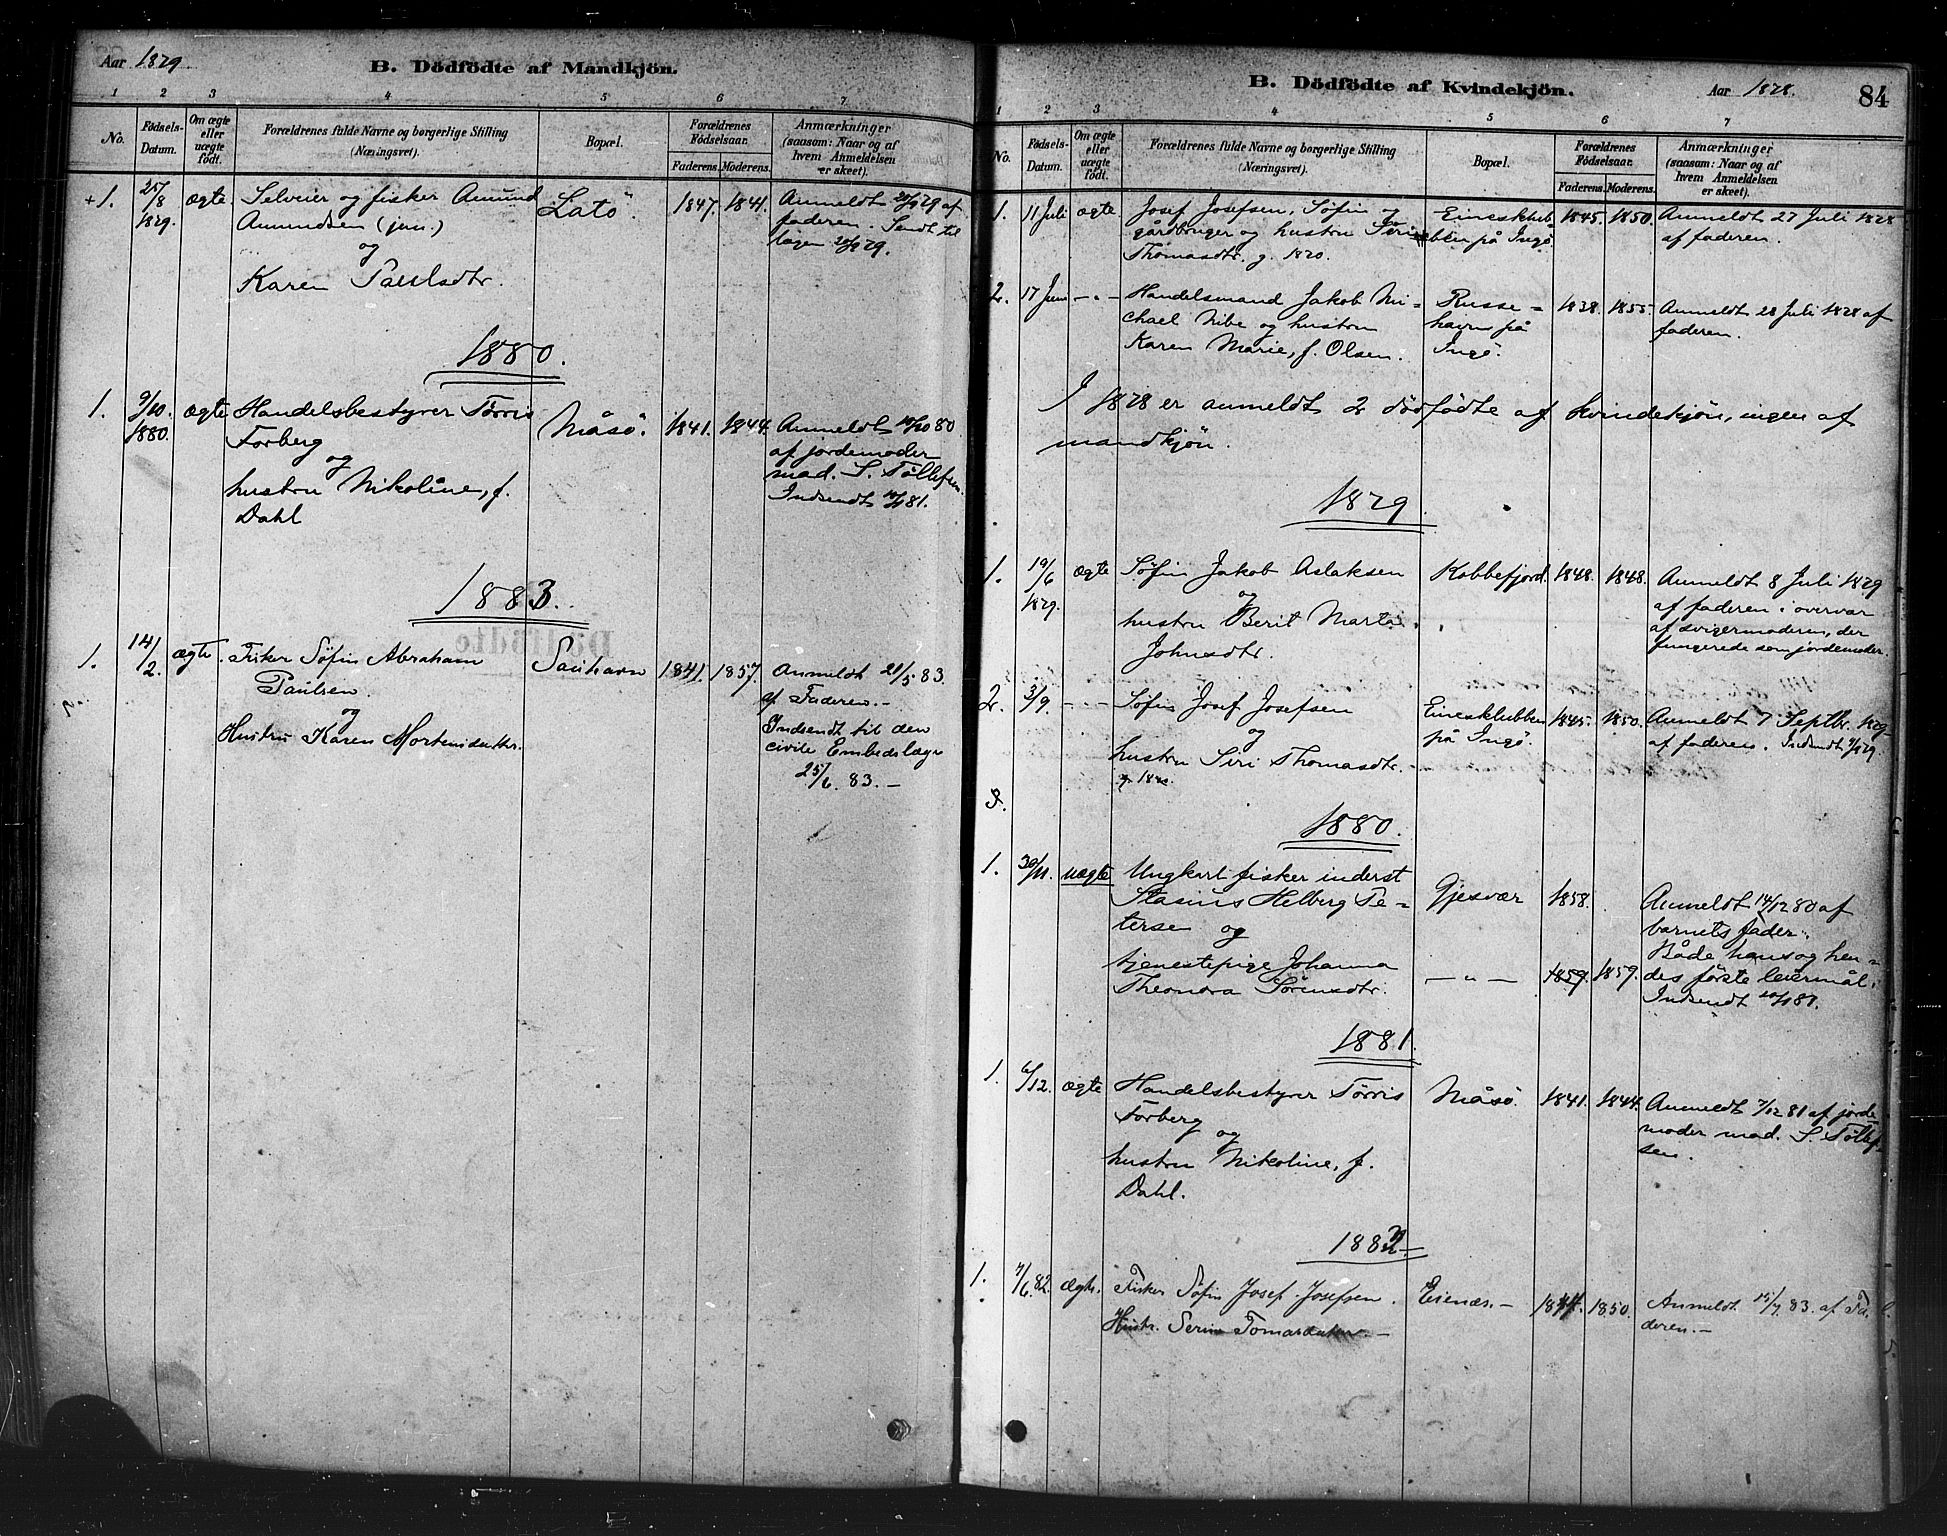 Aar 1879.
B. Dödfödte af Mandkjön.
1 2 3 4 5 6 7
No. Födsels-Datum. Om ægte eller uægte födt. Forældrenes fulde Navne og borgerlige Stilling (Næringsvei). Bopæl. Forældrenes Födselsaar. Faderens. Moderens. Anmærkninger (saasom: Naar og af hvem Anmeldelsen er skeet).
+1. 25/8 1879. ægte Selveier og fisker Amund Latö. 1847. 1841. Anmeldt 20/9 79 af
Amundsen (jun.) faderen. Sendt til
og lægen
Karen Paulsdtr.
1880.
1. 9/10 1880. ægte Handelsbestyrer Tørris Måsö. 1841. 1844. Anmeldt 10/10 80
Forberg af jordemoder
og mad. S. Tøllefsen.
hustru Nikoline, f. Indsendt 10/1 81.
Dahl
1883.
1. 14/2. ægte. Fisker Søfin Abraham Sauhavn 1841. 1857. Anmeldt 21/5 83.
Paulsen. af Faderen.-
og Indsendt til den
Hustru Karen Mortensdatter. civile Embedslæge
25/6. 83.-
B. Dödfödte af Kvindekjön.
Aar 1878.
84
1 2 3 4 5 6 7
No. Födsels-Datum. Om ægte eller uægte födt. Forældrenes fulde Navne og borgerlige Stilling (Næringsvei). Bopæl. Forældrenes Födselsaar. Faderens. Moderens. Anmærkninger (saasom: Naar og af hvem Anmeldelsen er skeet).
1. 11 Juli ægte Josef Josefsen, Søfin og Einesklub- 1845. 1850. Anmeldt 27 Juli 1878
gårdbruger og hustru Siri ben på Ingö. af faderen.
Thomasdtr.
2. 17 Juni -"- Handelsmand Jakob Mi- Russe- 1838. 1855. Anmeldt 28 Juli 1878 af
chael Nibe og hustru havn på faderen.
Karen Marie, f. Olsen. Ingö.
I 1878 er anmeldt 2 dödfödte af kvindekjön, ingen af
mandkjön.
1879.
1. 19/6 1879. ægte Søfin Jakob Aslaksen Kobbefjord. 1848. 1848. Anmeldt 8 Juli 1879
og af faderen i overvær
hustru Berit Marta af svigermoderen, der
Johnsdtr. fungerede som jordemoder.
2. 3/9. -"- Søfin Josef Josefsen Einesklubben 1845. 1850. Anmeldt 7 Septbr. 1879
og på Ingö. af faderen. Indsendt
hustru Siri Thomasdtr.
3.
1880.
1. 30/11. uægte Ungkarl fisker inderst Gjesvær 1858. Anmeldt 14/12 80 af
Stasius Helberg Pe- barnets fader.
tersen og Både hans og hen-
tjenestepige Johanna -"- 1859. 1859. des første leiermål.
Theonora Sörensdtr. Indsendt 10/1 81.
1881.
1. 6/12. ægte Handelsbestyrer Tørris Måsö. 1841. 1844. Anmeldt 7/12 81 af jorde-
Forberg moder mad. S. Tøllef-
og sen.
hustru Nikoline, f.
Dahl.
1882-
1. 7/6. 82. ægte. Fisker Søfin Josef Josefsen. Eienæs.- 1844. 1850. Anmeldt 15/7 83. af Fa-
Hustr. Serine Tomasdatter- deren.-